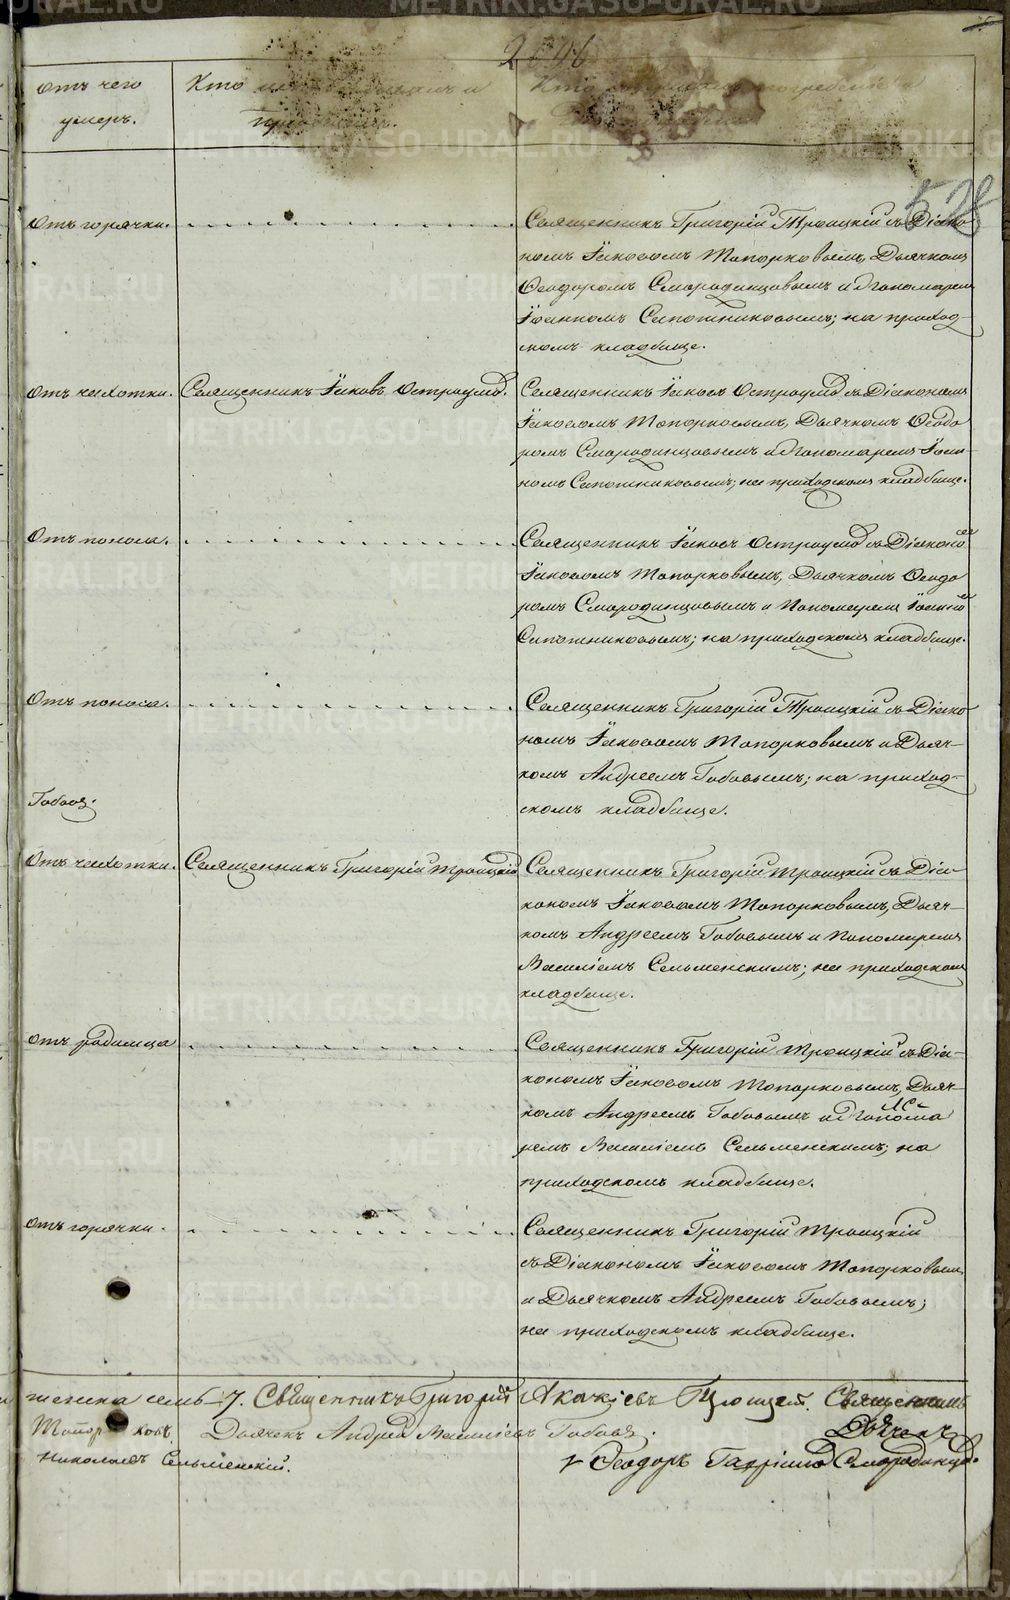 отъ чего
умеръ.
Кто
Кто погребенъ
Отъ горячки.
Священникъ Григорій Троицкій съ Діако
номъ Іаковомъ Топорковымъ, Дьячкомъ
Ѳеодоромъ Смородинцовымъ и Пономаремъ
Іоанномъ Сапожниковымъ; на приход-
скомъ кладбище.
Отъ чахотки.
Священникъ Іаковъ Остроумов.
Священникъ Іаковъ Остроумов съ Діакономъ
Іаковомъ Топорковымъ, Дьячкомъ Ѳеодо
ромъ Смородинцовымъ и Пономаремъ Іоан-
номъ Сапожниковымъ; на приходскомъ кладбище.
Отъ поноса.
Священникъ Іаковъ Остроумов съ Діакономъ
Іаковомъ Топорковымъ, Дьячкомъ Ѳеодо
ромъ Смородинцовымъ и Пономаремъ Іоанномъ
Сапожниковымъ; на приходскомъ кладбище.
Отъ поноса.
Священникъ Григорій Троицкій съ Діако
номъ Іаковомъ Топорковымъ и Дьяч-
комъ Андреемъ Бобовымъ; на приход-
скомъ кладбище.
Отъ чахотки.
Священникъ Григорій Троицкій
Священникъ Григорій Троицкій съ Діа-
кономъ Іаковомъ Топорковымъ, Дьяч-
комъ Андреемъ Бобовымъ и Пономаремъ
Василіемъ Сельменскимъ; на приходскомъ
кладбище.
Отъ родимца
Священникъ Григорій Троицкій съ Діа-
кономъ Іаковомъ Топорковымъ, Дьяч-
комъ Андреемъ Бобовымъ и Понома
ремъ Василіемъ Сельменскимъ; на
приходскомъ кладбище.
Отъ горячки.
Священникъ Григорій Троицкій
съ Діакономъ Іаковомъ Топорковымъ
и Дьячкомъ Андреемъ Бобовымъ;
на приходскомъ кладбище.
женска семь 7. Священникъ Григорій Акакіевъ Троицкій. Священникъ
Топорковъ Дьячекъ Андрей Василіевъ Бобовъ. Дьячекъ
Николаевъ Сельменскій. Ѳеодоръ Гавріиловъ Смородинцов.
METRIKI.GASO-URAL.RU